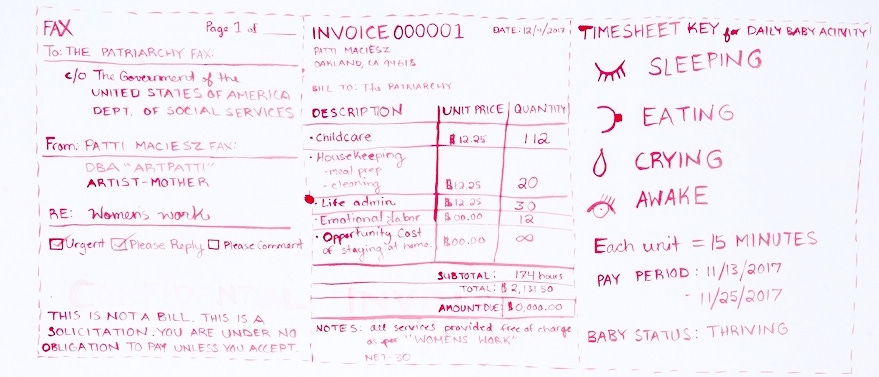 FAX
Page 1 of
To: THE PATRIARCHY FAX:
c/o The Government of the
UNITED STATES OF AMERICA
DEPT. OF SOCIAL SERVICES
From: PATTI MACIESZ FAX:
DBA "ARTPATTI"
ARTIST-MOTHER
RE: Womens work
Urgent Please Reply Please Comment
CONFIDENTIAL
THIS IS NOT A BILL. THIS IS A
SOLICITATION. YOU ARE UNDER NO
OBLIGATION TO PAY UNLESS YOU ACCEPT.
INVOICE 000001
DATE: 12/4/2017
PATTI MACIESZ
OAKLAND, CA 94618
BILL TO: The PATRIARCHY
DESCRIPTION UNIT PRICE QUANTITY
• Childcare $12.25 112
• Housekeeping
- meal prep
- cleaning $12.25 20
• Life admin $12.25 30
• Emotional labor $00.00 12
• Opportunity Cost
of staying at home. $00.00 ∞
SUBTOTAL: 174 hours
TOTAL: $2,131.50
AMOUNT DUE: $0,000.00
NOTES: all services provided free of charge
as per "WOMENS WORK"
NET-30
TIMESHEET KEY for DAILY BABY ACTIVITY
SLEEPING
EATING
CRYING
AWAKE
Each unit = 15 MINUTES
PAY PERIOD: 11/13/2017
- 11/25/2017
BABY STATUS: THRIVING